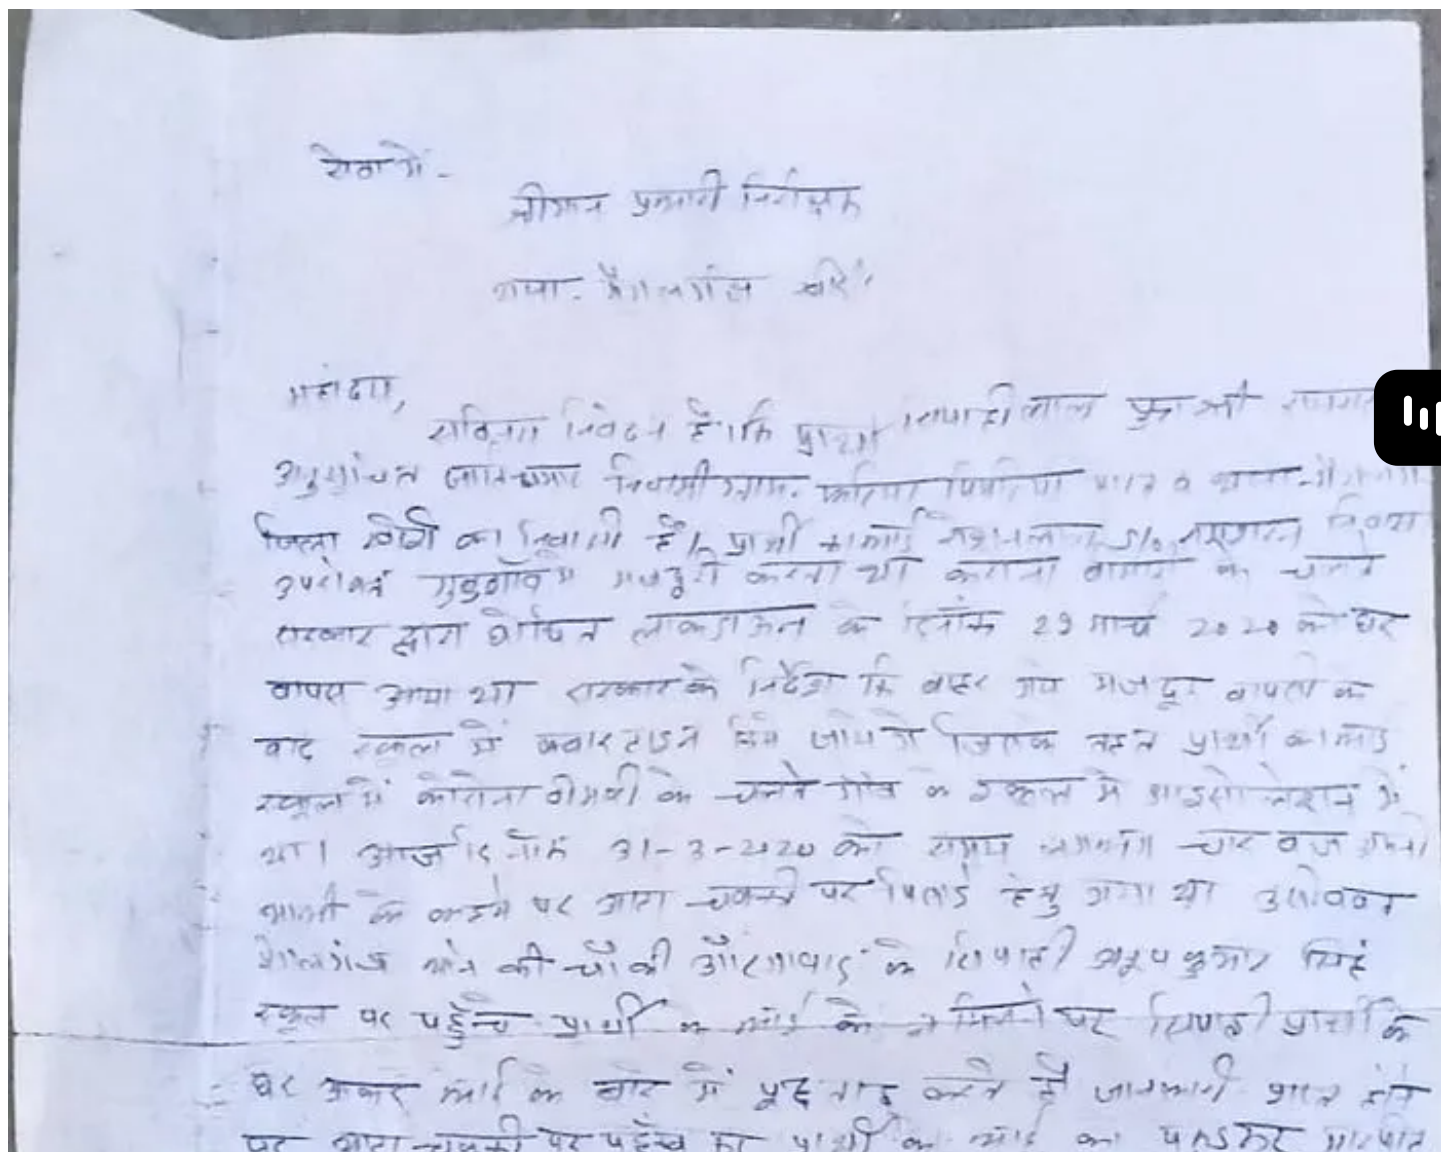 सेवा में-
श्रीमान प्रभारी निरीक्षक
थाना- मैगलगंज खीरी
महोदय,
सविनय निवेदन है कि प्रार्थी सिपाहीलाल पुत्र श्री
अनुसूचित जाति चमार निवासी ग्राम- फरिया पिपरिया थाना- मैगलगंज
जिला खीरी का निवासी है। प्रार्थी का भाई रोशनलाल S/o निवासी
उपरोक्त गुड़गाँव में मजदूरी करता था कोरोना बीमारी के चलते
सरकार द्वारा घोषित लाकडाऊन के दिनाँक 29 मार्च 2020 को घर
वापस आया था सरकार के निर्देश कि बाहर गये मजदूर वापसी के
बाद स्कूल में क्वारटाइन किये जायेगें जिसके तहत प्रार्थी का भाई
स्कूल में कोरोना बीमारी के चलते गाँव के स्कूल में आइसोलेशन में
था। आज दिनाँक 31-3-2020 को समय लगभग चार बजे अपनी
भाभी के कहने पर आटा चक्की पर पिसाई हेतु गया था उसी वक्त
मैगलगंज थाने की चौकी औरंगाबाद के सिपाही अनूप कुमार सिंह
स्कूल पर पहुँचे प्रार्थी के भाई के न मिलने पर सिपाही प्रार्थी के
घर आकर भाई के बारे में पूछताछ करते है जानकारी प्राप्त होने
पर आटा चक्की पर पहुँच कर प्रार्थी के भाई को पकड़कर मारपीट